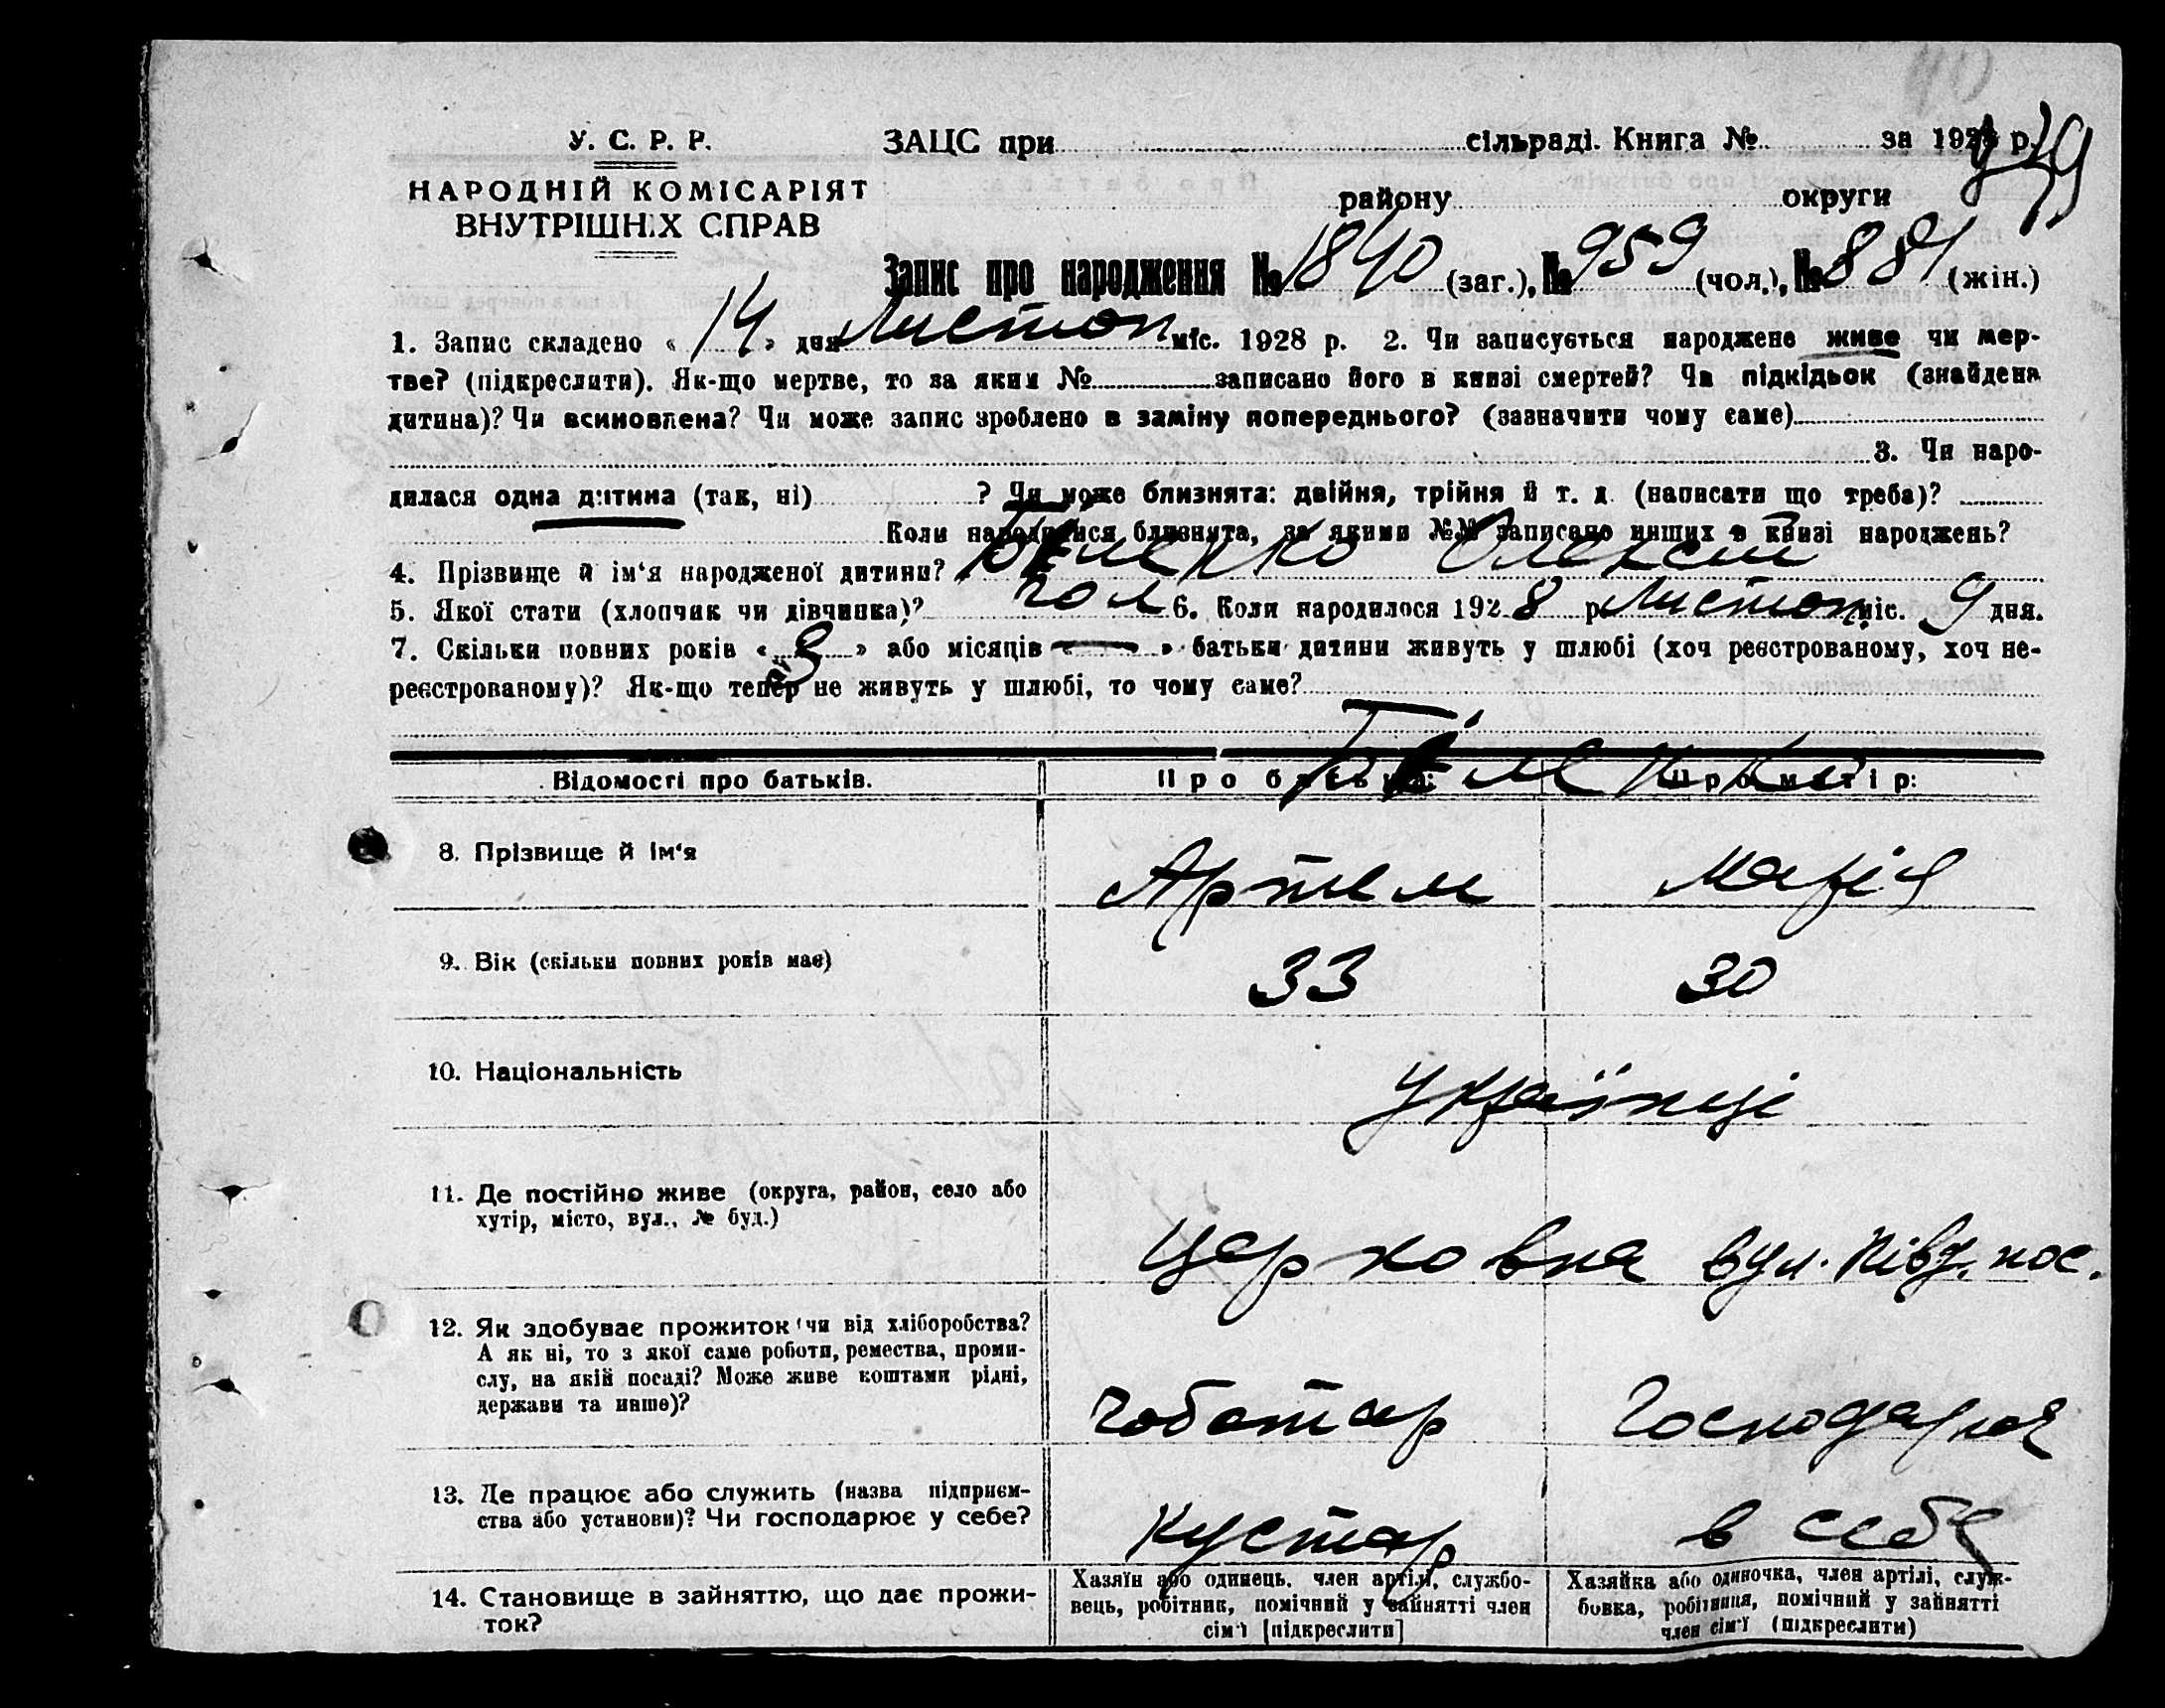 У. С. Р. Р.
НАРОДНІЙ КОМІСАРІЯТ
ВНУТРІШНІХ СПРАВ
ЗАЦС при сільраді. Книга № за 1928 р.
району округи
Запис про народження № 1840 (заг.), № 959 (чол.), № 881 (жін.)
1. Запис складено « 14 » дня Листоп міс. 1928 р. 2. Чи записується народжене живе чи мер-
тве? (підкреслити). Як-що мертве, то за яким № записано його в книзі смертей? Чи підкідьок (знайдена
дитина)? Чи всиновлена? Чи може запис зроблено в заміну попереднього? (зазначити чому саме)
3. Чи наро-
дилася одна дитина (так, ні) ? Чи може близнята: двійня, трійня й т. д. (написати що треба)?
Коли народилися близнята, за якими №№ записано инших в книзі народжень?
4. Прізвище й ім‘я народженої дитини? Олексій
5. Якої стати (хлопчик чи дівчинка)? чол 6. Коли народилося 1928 р. Листоп. міс. 9 дня.
7. Скільки повних років « 8 » або місяців « — » батьки дитини живуть у шлюбі (хоч реєстрованому, хоч не-
реєстрованому)? Як-що тепер не живуть у шлюбі, то чому саме?
Відомості про батьків. Про батька: Про матір:
8. Прізвище й ім‘я Артем Марія
9. Вік (скільки повних років має) 33 30
10. Національність Українці
11. Де постійно живе (округа, район, село або
хутір, місто, вул., № буд.)
Церковна вул. Півд. пос.
12. Як здобуває прожиток чи від хліборобства?
А як ні, то з якої саме роботи, ремества, проми-
слу, на якій посаді? Може живе коштами рідні,
держави та инше)?
Чоботар Господарює
13. Де працює або служить (назва підприєм-
ства або установи)? Чи господарює у себе?
Кустар в себе
14. Становище в зайняттю, що дає прожи-
ток?
Хазяїн або одинець, член артілі, службо-
вець, робітник, помічний у зайнятті член
сім‘ї [підкреслити]
Хазяйка або одиночка, член артілі, служ-
бовка, робітниця, помічний у зайнятті
член сім‘ї (підкреслити)